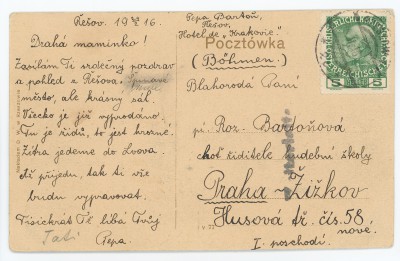 Řešov, 19 16.
Drahá maminko!
Zasílám Ti srdečný pozdrav
a pohled z Řešova.
město, ale krásný sál.
Všecko je již vyprodáno.
Tu je židů, to jest hrozné.
Zítra jedeme do Lvova.
Až přijedu, tak ti vše
budu vypravovat.
Tisíckrát Tě líbá Tvůj
Pepa.
Pepa Bartoň,
Řešov.
Hotel de „Krakovie"
Pocztówka
(Böhmen)
Blahorodá Paní
pí. Roz. Bartoňová
choť ředitele hudební školy
Praha-Žižkov
Husová tř. čís. 58,
nové.
I. poschodí
5
5